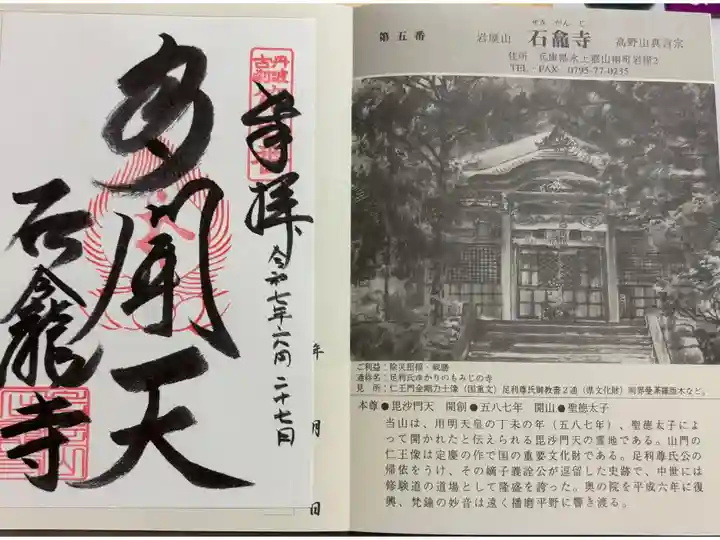 奉拝
令和七年六月二十七日
多聞天
石龕寺
年 月 日
第五番
岩屋山
せき がん じ
石龕寺
高野山真言宗
住所 兵庫県氷上郡山南町岩屋2
TEL・FAX 0795-77-0235
ご利益：除災招福・戦勝
通称名：足利氏ゆかりのもみじの寺
見 所：仁王門金剛力士像（国重文）足利尊氏御教書2通（県文化財）両界曼荼羅版木など。
本尊●毘沙門天 開創●五八七年 開山●聖徳太子
当山は、用明天皇の丁未の年（五八七年）、聖徳太子によ
って開かれたと伝えられる毘沙門天の霊地である。山門の
仁王像は定慶の作で国の重要文化財である。足利尊氏公の
帰依をうけ、その嫡子義詮公が逗留した史跡で、中世には
修験道の道場として隆盛を誇った。奥の院を平成六年に復
興、梵鐘の妙音は遠く播磨平野に響き渡る。